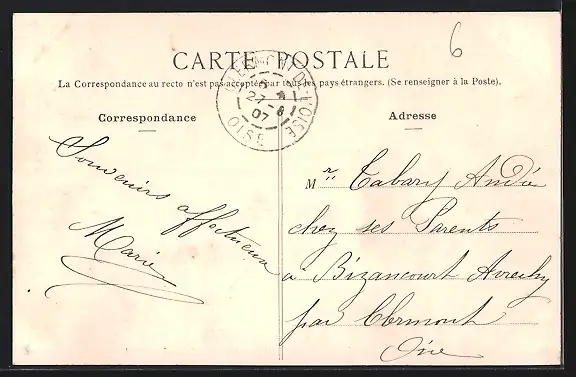 6
CARTE POSTALE
La Correspondance au recto n'est pas acceptée par tous les pays étrangers. (Se renseigner à la Poste).
27-8
07
OISE
Correspondance
Souvenirs affectueux
Marie
Adresse
M r Tabary André
chez ses Parents
à Bizancourt Avrechy
par Clermont
Oise